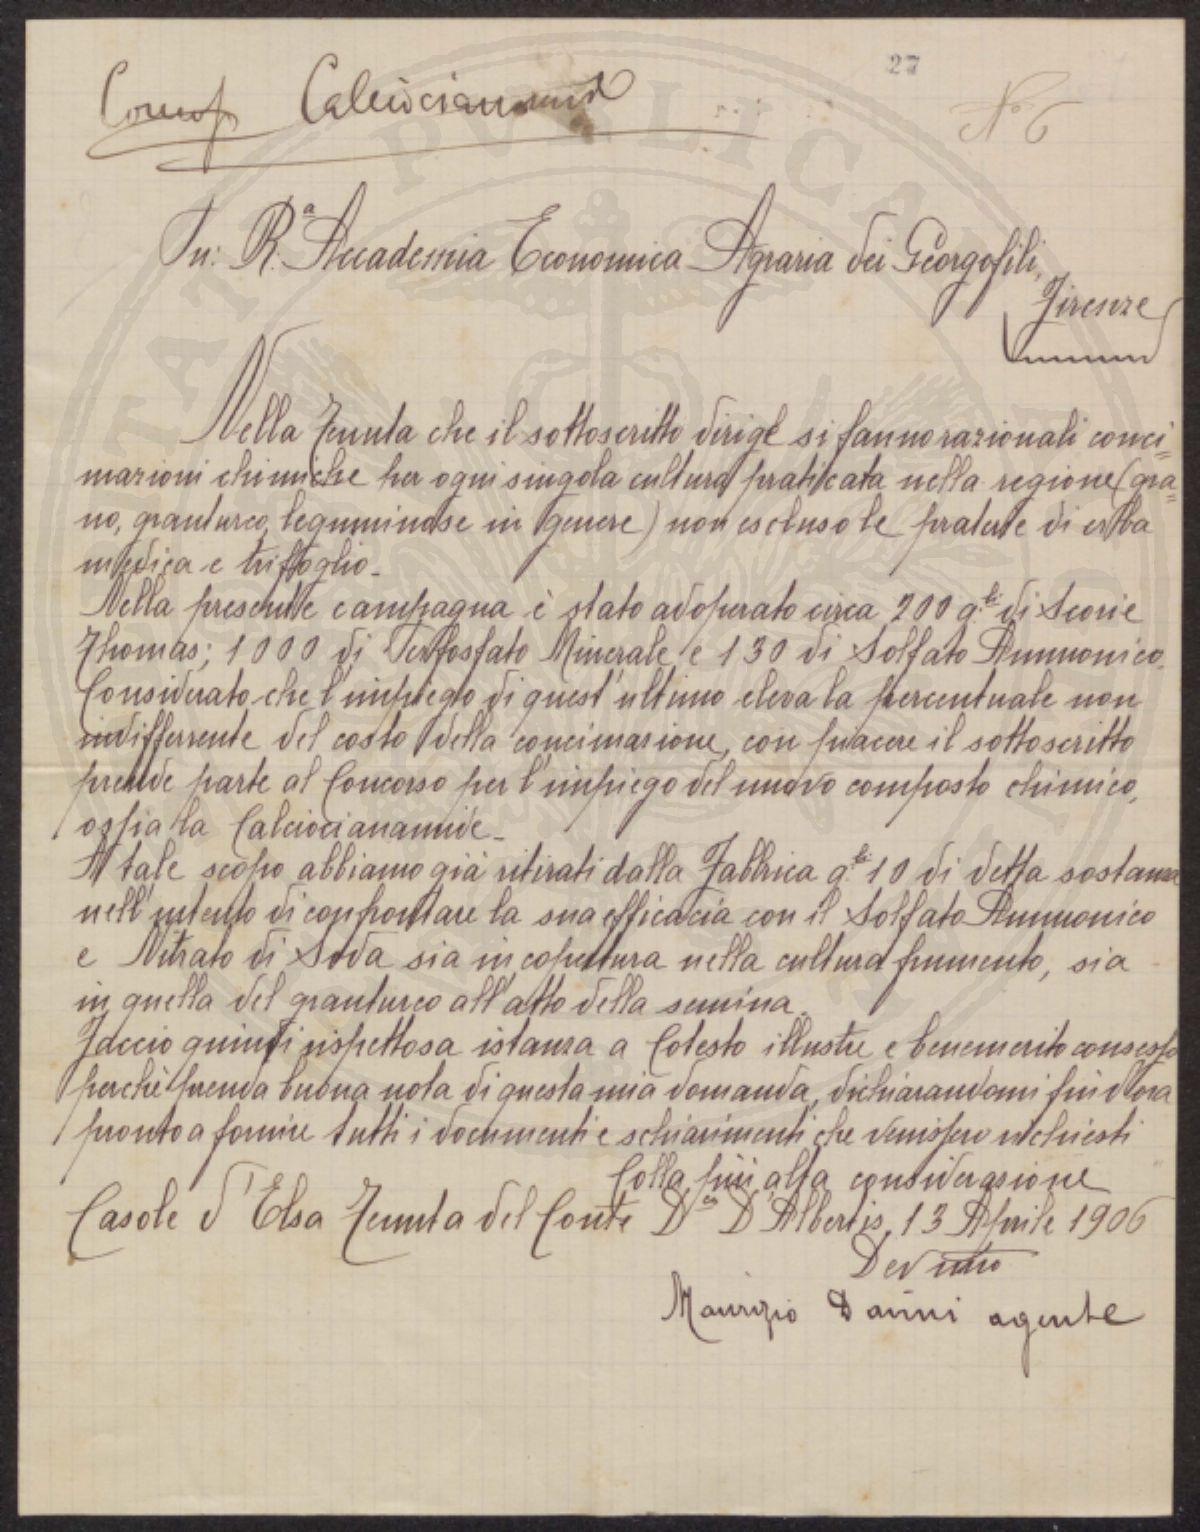 27
Calciocianamid
N° 6
R.ª Accademia Economica Agraria dei Georgofili,
Firenze
Nella Tenuta che il sottoscritto dirige si fanno razionali conci=
mazioni chimiche per ogni singola cultura praticata nella regione (gra=
no, granturco, leguminose in genere) non escluso le praterie di erba
medica e trifoglio_
Nella presente campagna è stato adoperato circa 200 q.li di Scorie
Thomas; 1000 di Perfosfato Minerale e 130 di Solfato Ammonico.
Considerato che l'impiego di quest'ultimo eleva la percentuale non
indifferente del costo della concimazione, con piacere il sottoscritto
prende parte al Concorso per l'impiego del nuovo composto chimico,
ossia la Calciocianamide_
A tale scopo abbiamo già ritirati dalla Fabbrica q.li 10 di detta sostanza
nell'intento di confrontare la sua efficacia con il Solfato Ammonico
e Nitrato di Soda sia in copertura nella cultura frumento, sia
in quella del granturco all'atto della semina.
Faccio quindi rispettosa istanza a Cotesto illustre e benemerito consesso
perchè prenda buona nota di questa mia domanda, dichiarandomi fin d'ora
pronto a fornire tutti i documenti e schiarimenti che venissero richiesti
Colla più alta considerazione
Casole d'Elsa Tenuta del Conte D'Albertis, 13 Aprile 1906
Dev.mo
Maurizio Danni agente